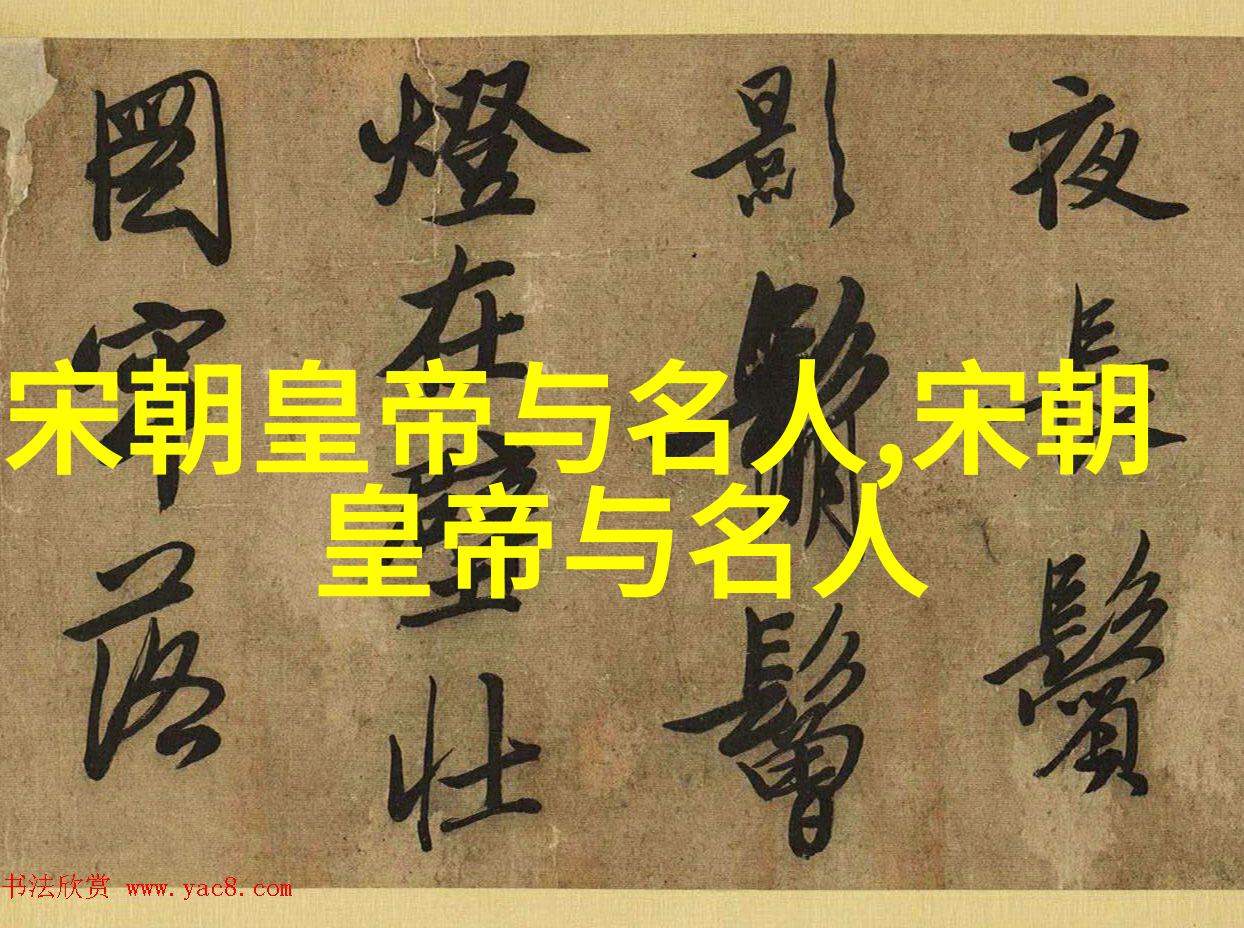 夜長鬢
影鬅鬙
燈在壁壯
圖牢落
宋朝皇帝与名人,宋朝
皇帝与名人
书法欣赏 www.yac8.com